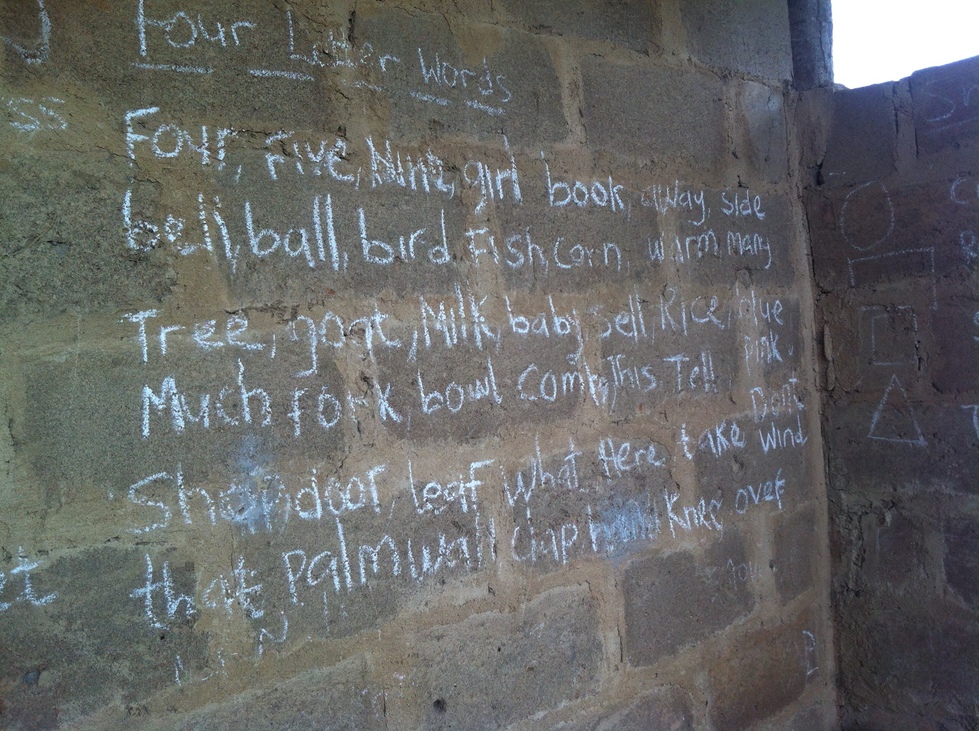 Four Letter Words
ss
Four, Five, Nine, girl book, away, side
bell, ball, bird Fish, corn, warm many
Tree, goat, Milk, baby, sell, Rice, blue
pink,
Much fork, bowl comb, This Tell
Don't
Shop, door, leaf, what, Here take Wind
that, palm, wall clap Knee over
et